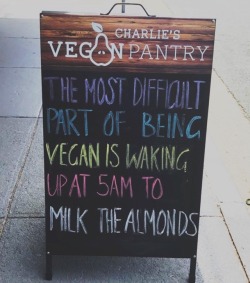 CHARLIE'S
VEGAN PANTRY
THE MOST DIFFICULT
PART OF BEING
VEGAN IS WAKING
UP AT 5AM TO
MILK THE ALMONDS